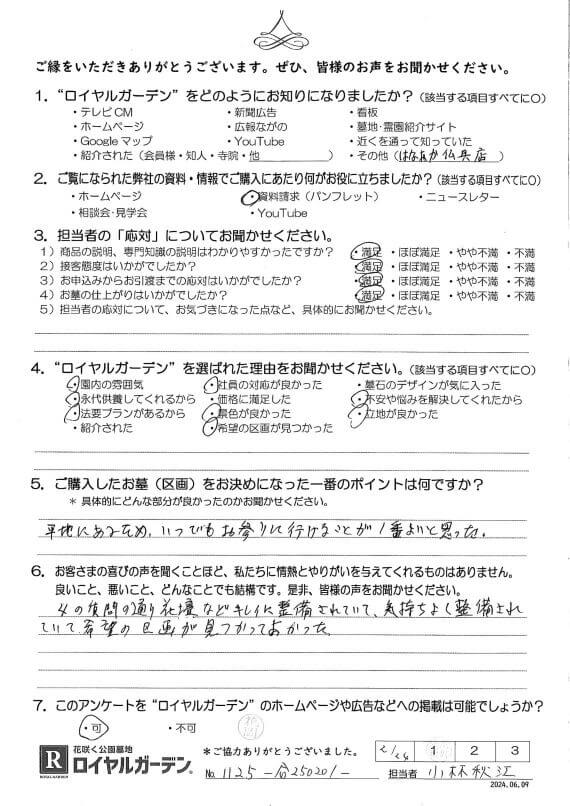 ご縁をいただきありがとうございます。ぜひ、皆様のお声をお聞かせください。
1. “ロイヤルガーデン”をどのようにお知りになりましたか？(該当する項目すべてに○)
・テレビCM ・新聞広告 ・看板
・ホームページ ・広報ながの ・墓地・霊園紹介サイト
・Googleマップ ・YouTube ・近くを通って知っていた
・紹介された（会員様・知人・寺院・他 ） ・その他（はなおか仏具店）
2. ご覧になられた弊社の資料・情報でご購入にあたり何がお役に立ちましたか？(該当する項目すべてに○)
・ホームページ ・資料請求（パンフレット） ・ニュースレター
・相談会・見学会 ・YouTube
3. 担当者の「応対」についてお聞かせください。
1）商品の説明、専門知識の説明はわかりやすかったですか？ ・満足 ・ほぼ満足 ・やや不満 ・不満
2）接客態度はいかがでしたか？ ・満足 ・ほぼ満足 ・やや不満 ・不満
3）お申込みからお引渡までの応対はいかがでしたか？ ・満足 ・ほぼ満足 ・やや不満 ・不満
4）お墓の仕上がりはいかがでしたか？ ・満足 ・ほぼ満足 ・やや不満 ・不満
5）担当者の応対について、お気づきになった点など、具体的にお聞かせください。
4. “ロイヤルガーデン”を選ばれた理由をお聞かせください。(該当する項目すべてに○)
・園内の雰囲気 ・社員の対応が良かった ・墓石のデザインが気に入った
・永代供養してくれるから ・価格に満足した ・不安や悩みを解決してくれたから
・法要プランがあるから ・景色が良かった ・立地が良かった
・紹介された ・希望の区画が見つかった
5. ご購入したお墓（区画）をお決めになった一番のポイントは何ですか？
＊ 具体的にどんな部分が良かったのかお聞かせください。
平地にあるため、いつでもお参りに行けることが1番よいと思った。
6. お客さまの喜びの声を聞くことほど、私たちに情熱とやりがいを与えてくれるものはありません。
良いこと、悪いこと、どんなことでも結構です。是非、皆様の声をお聞かせください。
4の質問の通り花壇などキレイに整備されていて、気持ちよく整備され
ていて、希望の区画が見つかってよかった
7. このアンケートを“ロイヤルガーデン”のホームページや広告などへの掲載は可能でしょうか？
・可 ・不可
花咲く公園墓地
R ロイヤルガーデン®
ROYAL GARDEN
＊ご協力ありがとうございました。
1 2 3
No. 1125-合250201-
担当者 小林秋江
2024.06.09